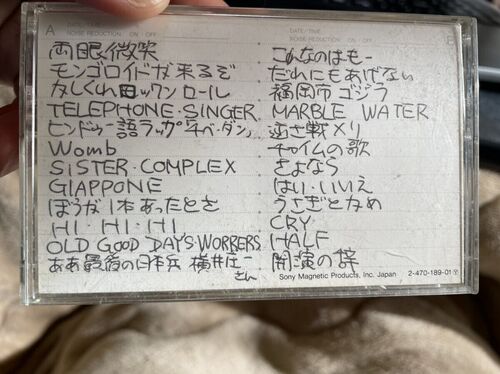 A
DATE/TIME
NOISE REDUCTION ON / OFF
両眼微笑
モンゴロイドが来るぞ
TELEPHONE・SINGER
Womb
SISTER・COMPLEX
GIAPPONE
ぼうが1本あったとさ
HI・HI・HI
OLD GOOD DAYS・WORBERS
ああ最後の日本兵 横井庄一
さん
DATE/TIME
NOISE REDUCTION ON / OFF
こんなのはもー
だれにもあげない
福岡市ゴジラ
MARBLE WATER
チャイムの歌
さよなら
はい・いいえ
うさぎとかめ
CRY
HALF
開演の辞
Sony Magnetic Products, Inc. Japan 2-470-189-01